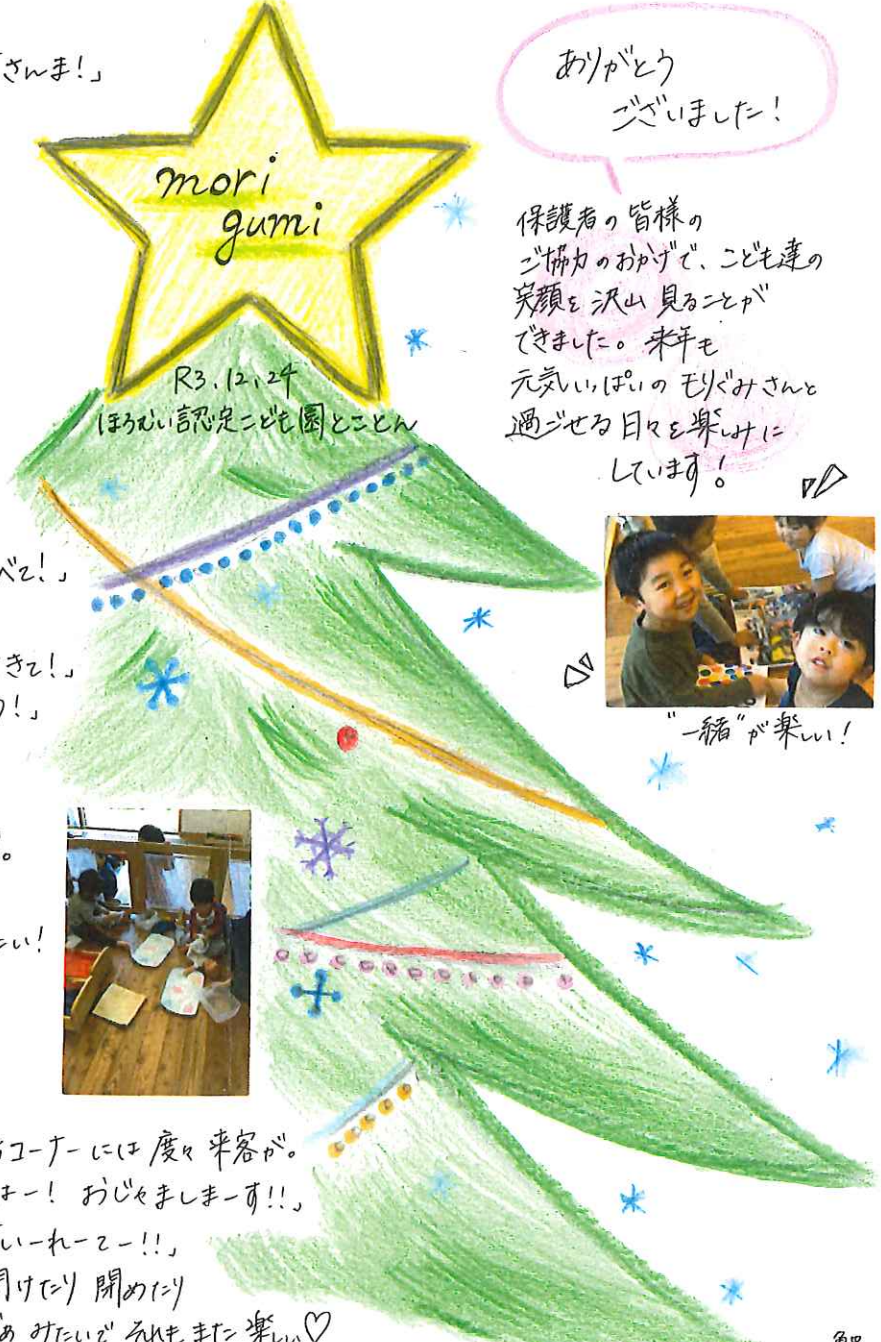 さんま!」
mori
gumi
R3.12.24
ほろむい認定こども園とことん
ありがとう
ございました!
保護者の皆様の
ご協力のおかげで、こども達の
笑顔を沢山見ることが
できました。来年も
元気いっぱいのもりぐみさんと
過ごせる日々を楽しみに
しています!
"一緒"が楽しい!
べて!」
きて!」
!」
。
たい!
コーナーには度々来客が。
はー!おじゃましまーす!!」
「いーれーてー!!」
開けたり閉めたり
みたいで それも また 楽しい♡